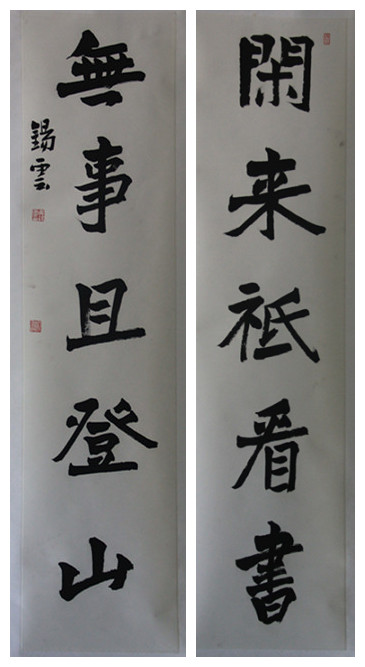 閑来祗看書
無事且登山
錫雲